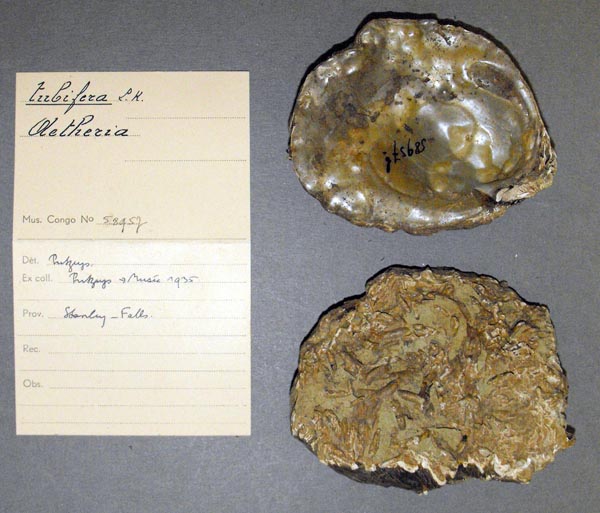 tubifera S.K.
Aetheria
Mus. Congo No 58957
Dét. Putzeys.
Ex coll. Putzeys → Musée 1935
Prov. Stanley-Falls.
Rec.
Obs.
58957